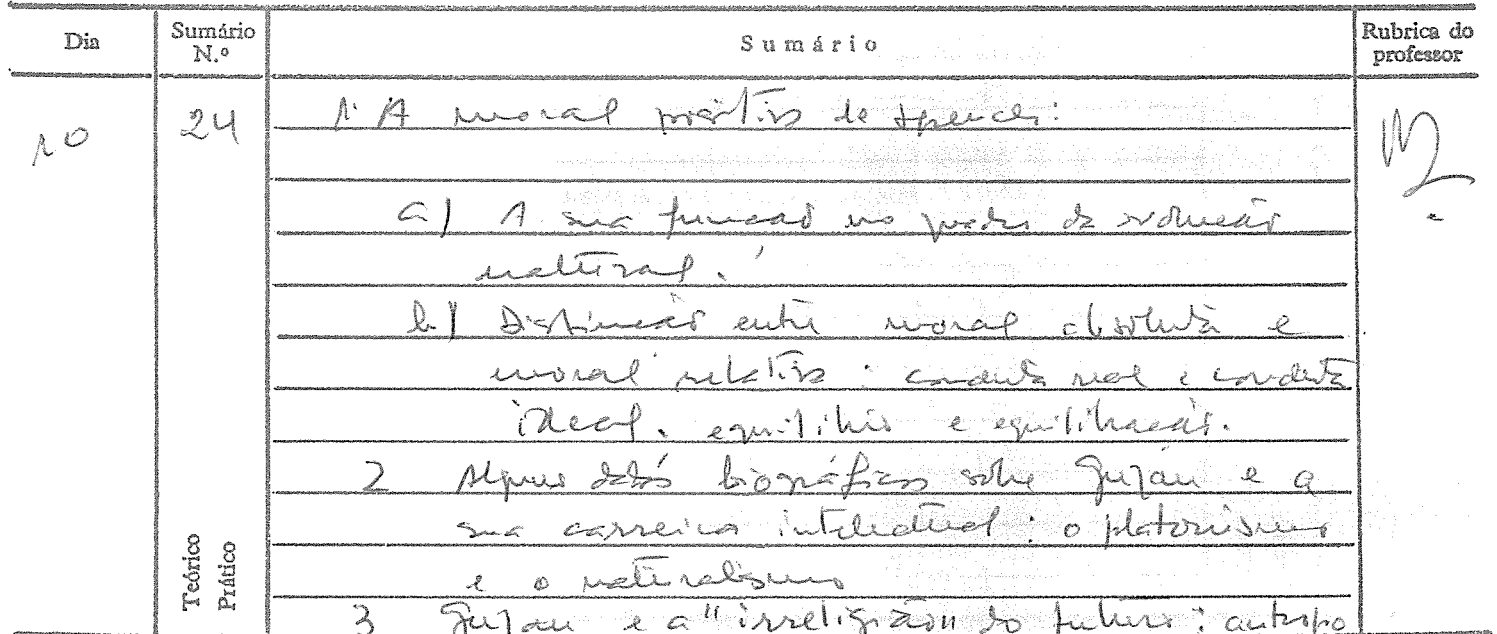 Dia
Sumário N.º
Sumário
Rubrica do professor
10
24
1. A moral positiva de Spencer:
a) A sua função no quadro da evolução
natural.
b) Distinção entre moral absoluta e
moral relativa: conduta real e conduta
ideal. equilíbrio e equilibração.
2 Alguns dados biográficos sobre Guyau e a
sua carreira intelectual: o platonismo
e o naturalismo
3 Guyau e a "irreligião" do futuro: antropo
Teórico
Prático